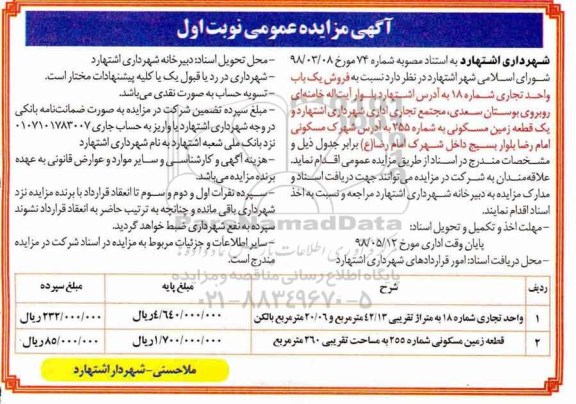 آگهی مزایده عمومی نوبت اول
شهرداری اشتهارد به استناد مصوبه شماره ۷۴ مورخ ۹۸/۰۳/۰۸
شورای اسلامی شهر اشتهارد در نظر دارد نسبت به فروش یک باب
واحد تجاری شماره ۱۸ به آدرس اشتهارد بلوار آیت‌اله خامنه‌ای
روبروی بوستان سعدی، مجتمع تجاری اداری شهرداری اشتهارد و
یک قطعه زمین مسکونی به شماره ۲۵۵ به آدرس شهرک مسکونی
امام رضا بلوار بسیج داخل شهرک امام رضا(ع) برابر جدول ذیل و
مشخصات مندرج در اسناد از طریق مزایده عمومی اقدام نماید.
علاقه‌مندان به شرکت در مزایده می‌توانند جهت دریافت اسناد و
مدارک مزایده به دبیرخانه شهرداری اشتهارد مراجعه و نسبت به اخذ
اسناد اقدام نمایند.
-مهلت اخذ و تکمیل و تحویل اسناد:
پایان وقت اداری مورخ ۹۸/۰۵/۱۲
-محل دریافت اسناد: امور قراردادهای شهرداری اشتهارد
-محل تحویل اسناد: دبیرخانه شهرداری اشتهارد
-شهرداری در رد یا قبول یک یا کلیه پیشنهادات مختار است.
-تسویه حساب به صورت نقدی می‌باشد.
-مبلغ سپرده تضمین شرکت در مزایده به صورت ضمانت‌نامه بانکی
در وجه شهرداری اشتهارد یا واریز به حساب جاری ۰۱۰۷۱۰۱۷۸۳۰۰۷
نزد بانک ملی شعبه اشتهارد به نام شهرداری اشتهارد
-هزینه آگهی و کارشناسی و سایر موارد و عوارض قانونی به عهده
برنده مزایده می‌باشد.
-سپرده نفرات اول و دوم و سوم تا انعقاد قرارداد با برنده مزایده نزد
شهرداری باقی مانده و چنانچه به ترتیب حاضر به انعقاد قرارداد نشوند
سپرده به نفع شهرداری ضبط خواهد گردید.
-سایر اطلاعات و جزئیات مربوط به مزایده در اسناد شرکت در مزایده
مندرج است.
ParsNamadData
پایگاه اطلاع رسانی مناقصه و مزایده
۰۲۱-۸۸۳۴۹۶۷۰-۵
ردیف شرح مبلغ پایه مبلغ سپرده
۱ واحد تجاری شماره ۱۸ به متراژ تقریبی ۴۲/۱۳ مترمربع و ۲۰/۰۶ مترمربع بالکن ۴/۶۴۰/۰۰۰/۰۰۰ریال ۲۳۲/۰۰۰/۰۰۰ ریال
۲ قطعه زمین مسکونی شماره ۲۵۵ به مساحت تقریبی ۲۶۰ مترمربع ۱/۷۰۰/۰۰۰/۰۰۰ریال ۸۵/۰۰۰/۰۰۰ریال
ملاحسنی-شهردار اشتهارد